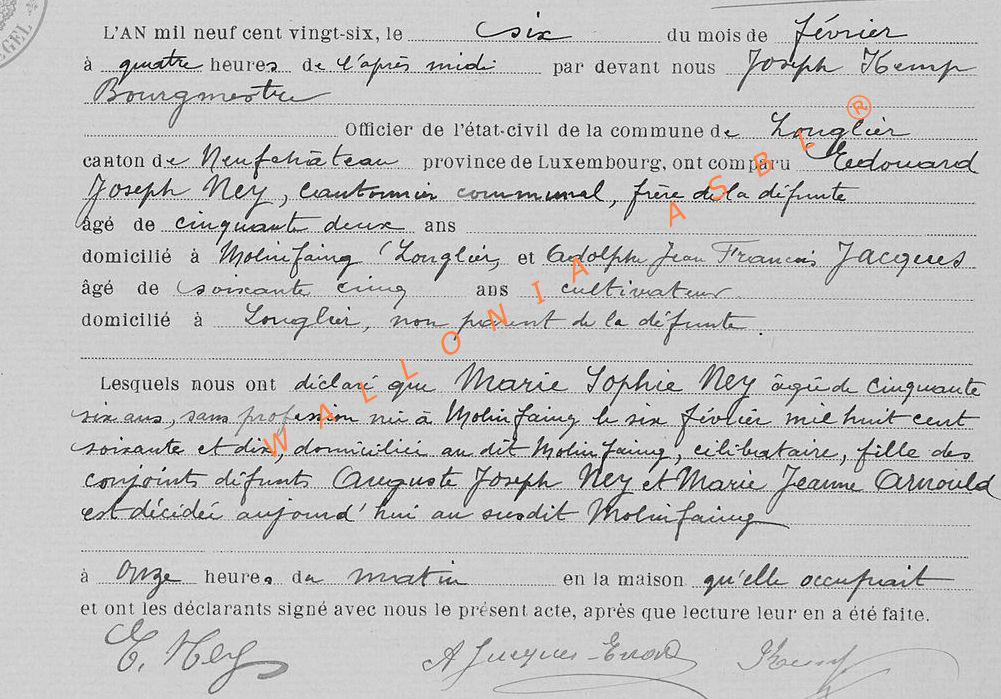 L'AN mil neuf cent vingt-six, le six du mois de février
à quatre heures de l'après midi par devant nous Joseph Kemp
Bourgmestre
Officier de l'état-civil de la commune de Longlier
canton de Neufchâteau province de Luxembourg, ont comparu Edouard
Joseph Ney, cantonnier communal, frère de la défunte
âgé de cinquante deux ans
domicilié à Molinfaing (Longlier, et Adolphe Jean François Jacques
âgé de soixante cinq ans cultivateur
domicilié à Longlier, non parent de la défunte.
Lesquels nous ont déclaré que Marie Sophie Ney âgée de cinquante
six ans, sans profession née à Molinfaing le six février mil huit cent
soixante et dix, domiciliée au dit Molinfaing, célibataire, fille des
conjoints défunts Auguste Joseph Ney et Marie Jeanne Arnould
est décédée aujourd'hui au susdit Molinfaing
à onze heures du matin en la maison qu'elle occupait
et ont les déclarants signé avec nous le présent acte, après que lecture leur en a été faite.
E. Ney A Jacques Kemp
WALLONIA ASBL ®